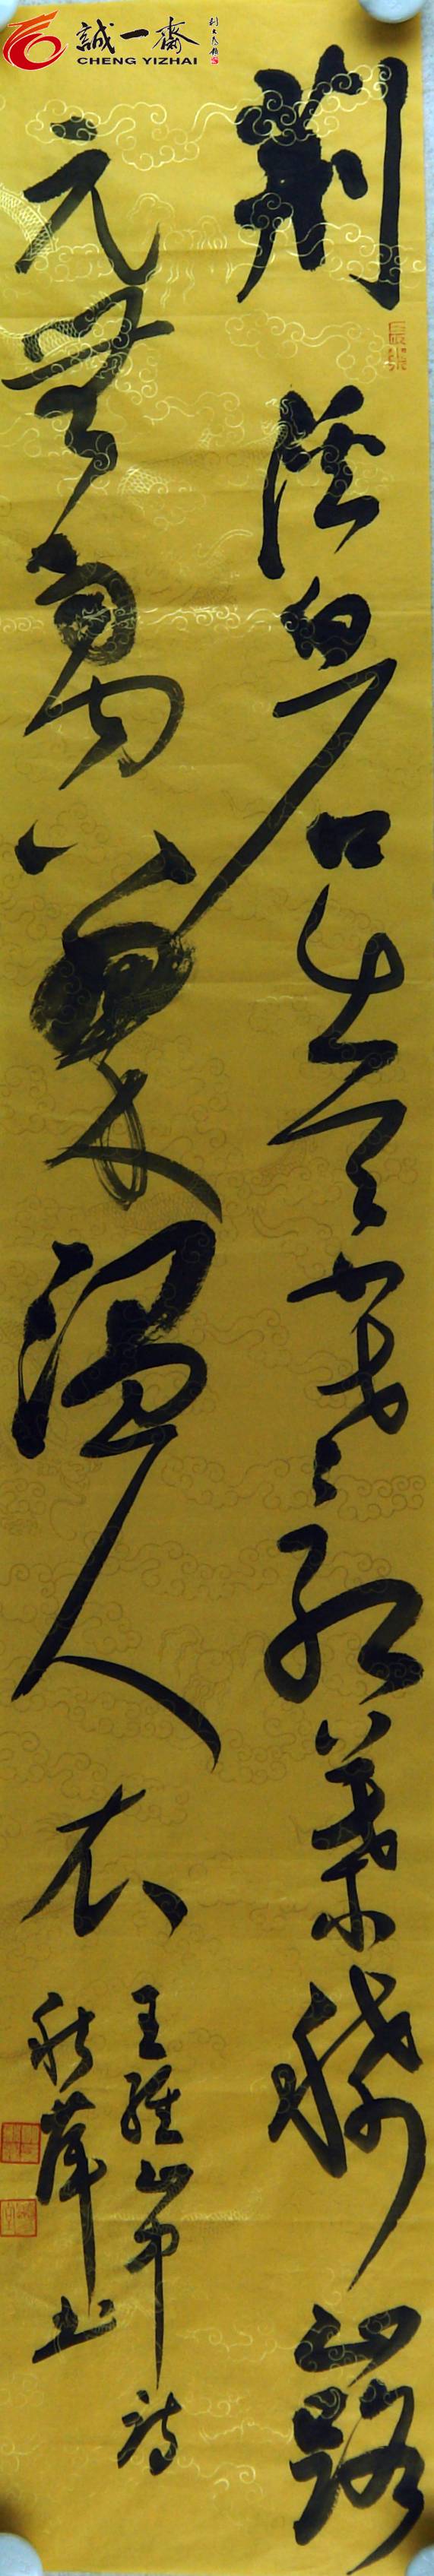 誠一齋
CHENG YIZHAI
荆溪白石出天寒紅葉稀山路
元無雨空翠濕人衣
王維山中詩
秋书